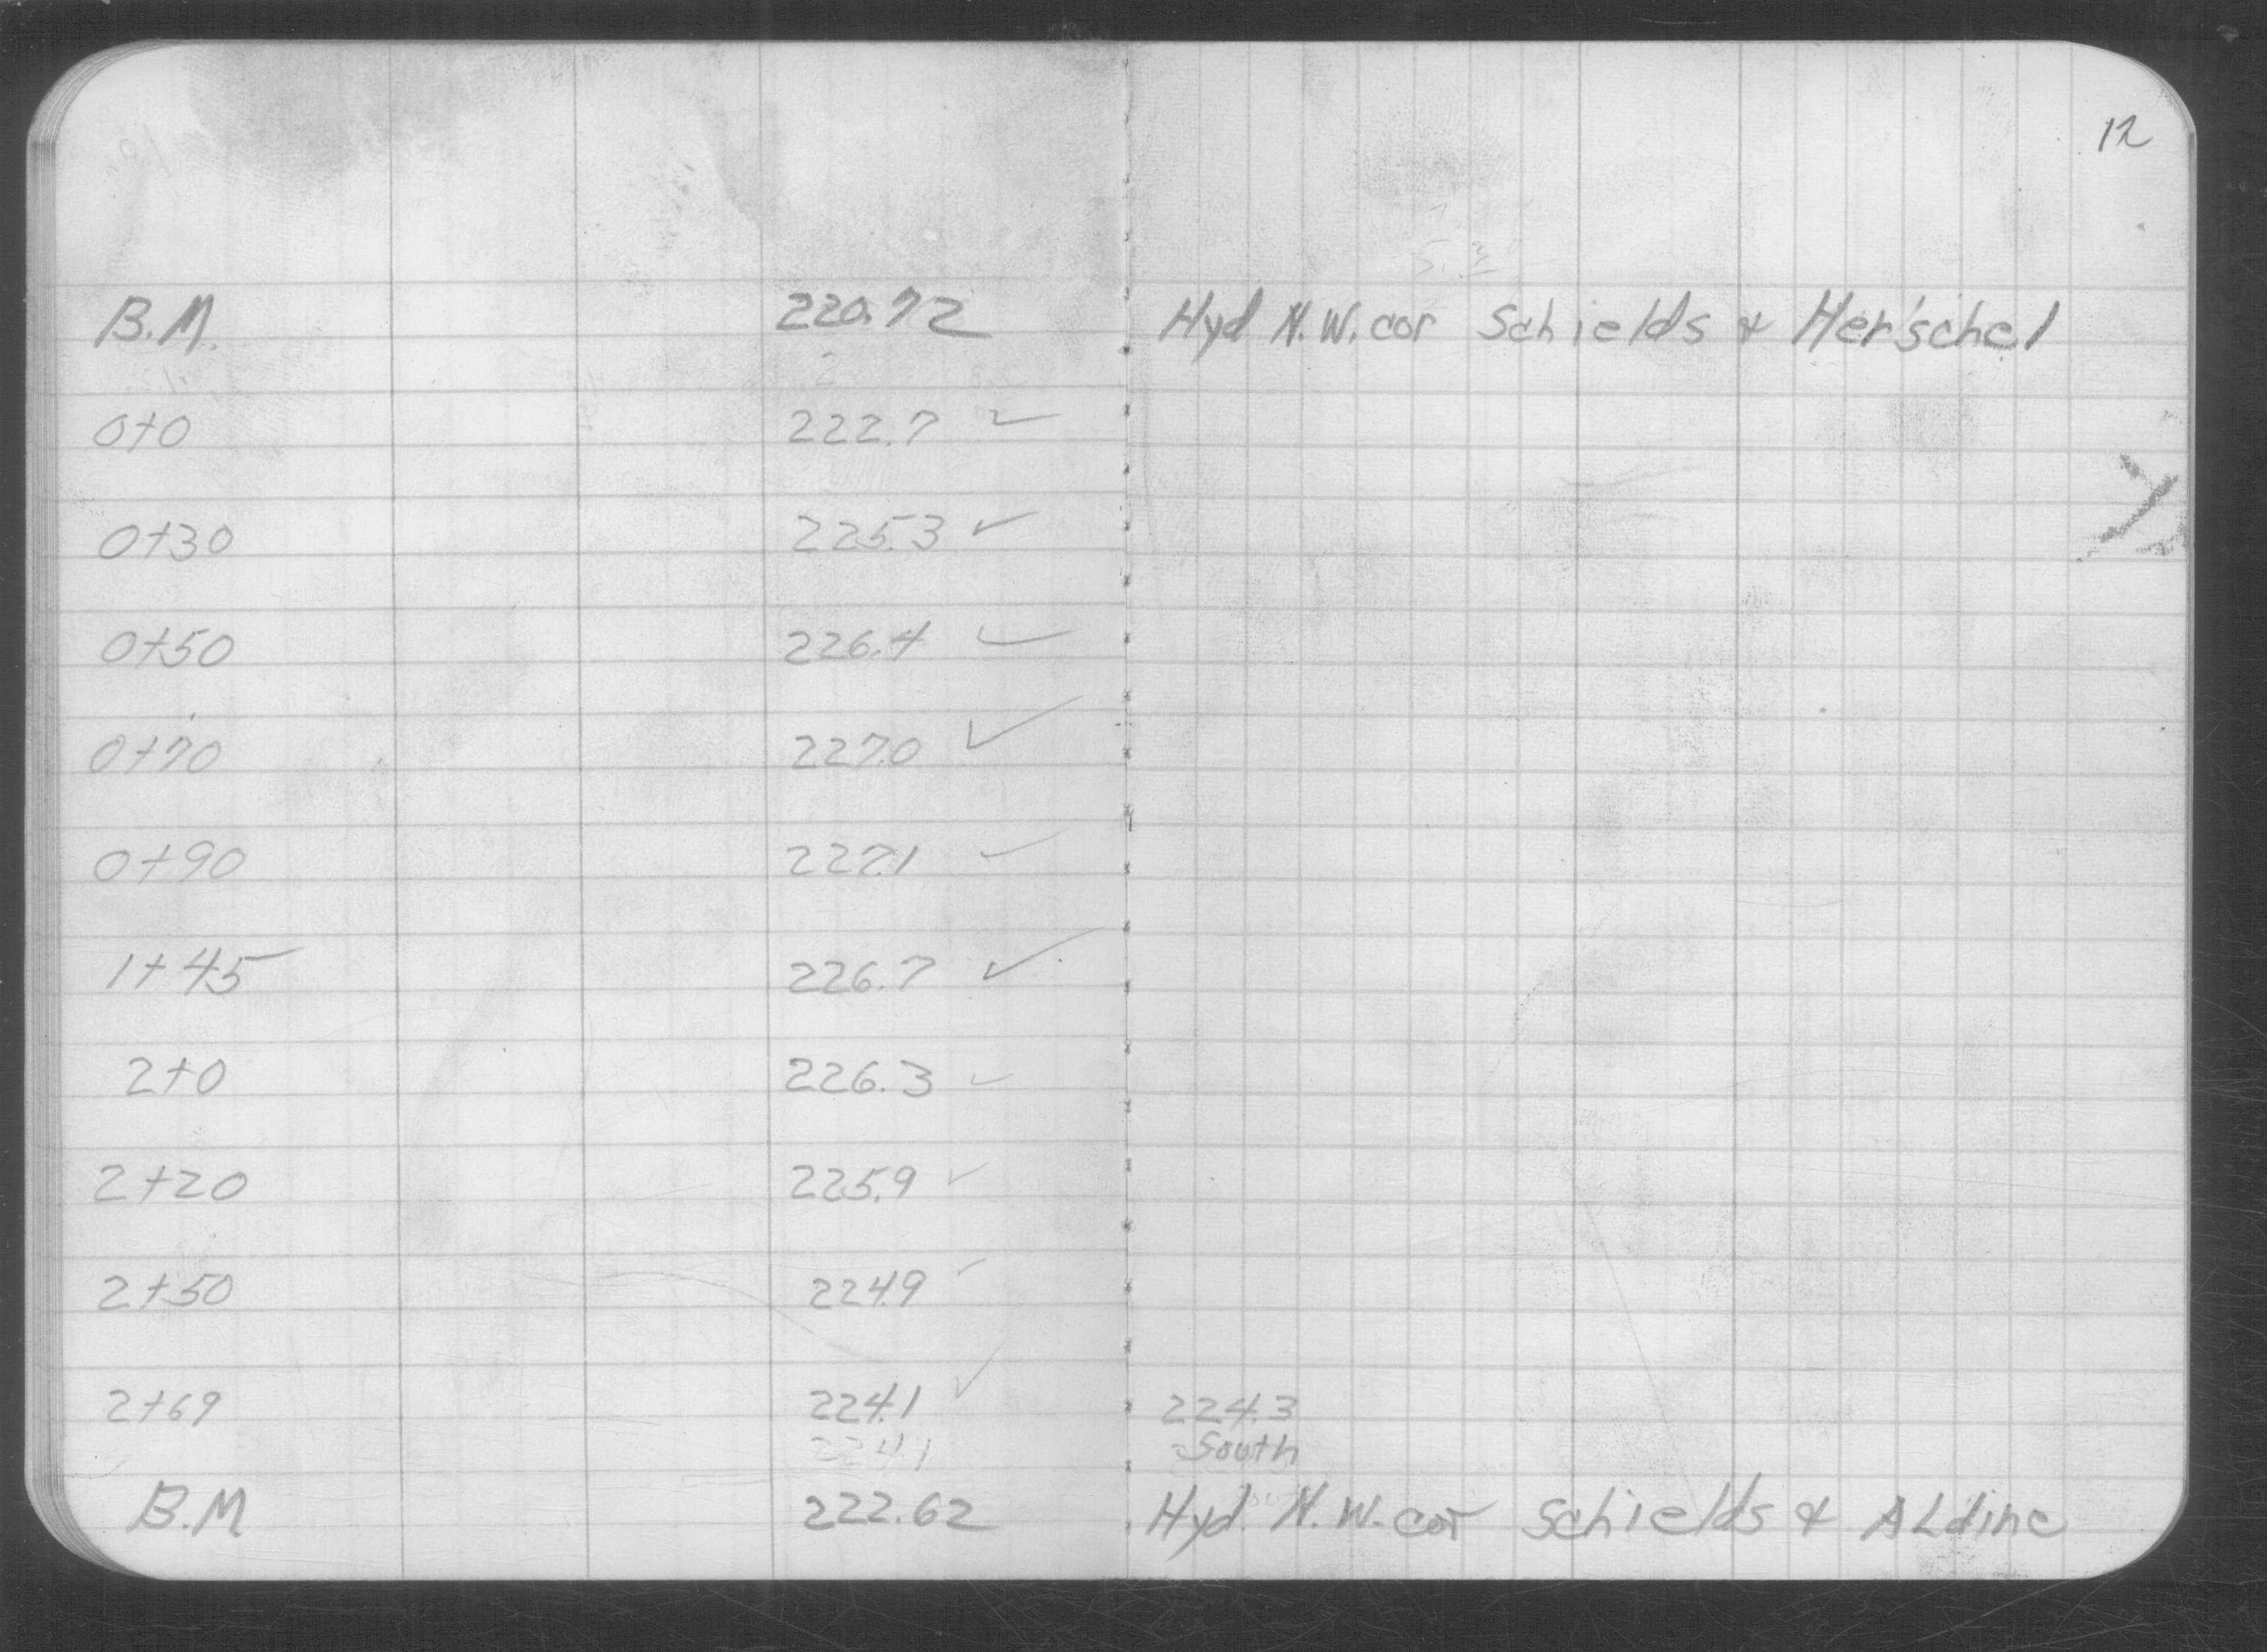 12
B.M. 220.72 Hyd N.W. cor Schields & Herschel
0+0 222.7 ✓
0+30 225.3 ✓
0+50 226.4 ✓
0+70 227.0 ✓
0+90 227.1 ✓
1+45 226.7 ✓
2+0 226.3 ✓
2+20 225.9 ✓
2+50 224.9 ✓
2+69 224.1 ✓ 224.3
224.1 South
B.M 222.62 Hyd. N.W. cor Schields & ALdine